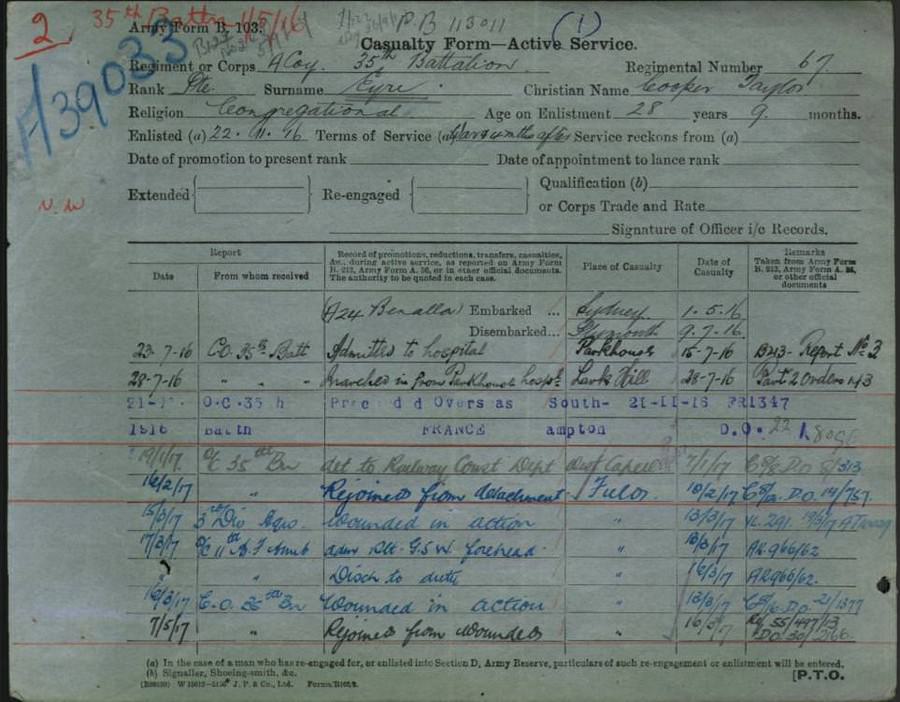 2 35th Battn 1/5/16 P.B 113011 (1)
Army Form B. 103.
A/39033
Casualty Form—Active Service.
Regiment or Corps A Coy. 35th Battalion Regimental Number 67
Rank Pte. Surname Eyre Christian Name Cooper Taylor
Religion Congregational Age on Enlistment 28 years 9. months.
Enlisted (a) 22. 11. 16 Terms of Service (a) War & 4 mths after Service reckons from (a)
Date of promotion to present rank Date of appointment to lance rank
Extended Re-engaged Qualification (b)
or Corps Trade and Rate
N. W
Signature of Officer i/c Records.
Report Record of promotions, reductions, transfers, casualties, &c., during active service, as reported on Army Form B. 213, Army Form A. 36, or in other official documents. The authority to be quoted in each case. Place of Casualty Date of Casualty Remarks Taken from Army Form B. 213, Army Form A. 36, or other official documents
Date From whom received
A24 Benalla Embarked ... Sydney 1-5-16
Disembarked... Plymouth 9-7-16
23-7-16 C.O. 35th Batt Admitted to hospital Parkhouse 15-7-16 B213- Report No 3
28-7-16 " " " Marched in from Parkhouse hospl. Lark Hill 28-7-16 Part 2 Orders 43
O.C. 35 h Pr c d d Overs as South- 21-11-16 FR1347
1916 Battn FRANCE ampton D.O. 22
19/1/17 O/C 35th Bn det to Railway Const Dept 7/1/17 D.O 8/313
16/2/17 " Rejoined from detachment Field. 10/2/17 D.O. 14/757.
15/3/17 3rd Div Wounded in action " 13/3/17 19/3/17
17/3/17 O/C 11th A F Amb adm G.S.W. forehead " 13/3/17 AR966/62
" " Disch to duty " 16/3/17 AR966/62.
16/3/17 C.O. 35th Bn Wounded in action " 13/3/17 D.O 21/1377
7/5/17 " Rejoined from wounded 16/3/17 55/497/13
D.O. 30/2166.
(a) In the case of a man who has re-engaged for, or enlisted into Section D, Army Reserve, particulars of such re-engagement or enlistment will be entered.
(b) Signaller, Shoeing-smith, &c.
J. P. & Co., Ltd. [P.T.O.